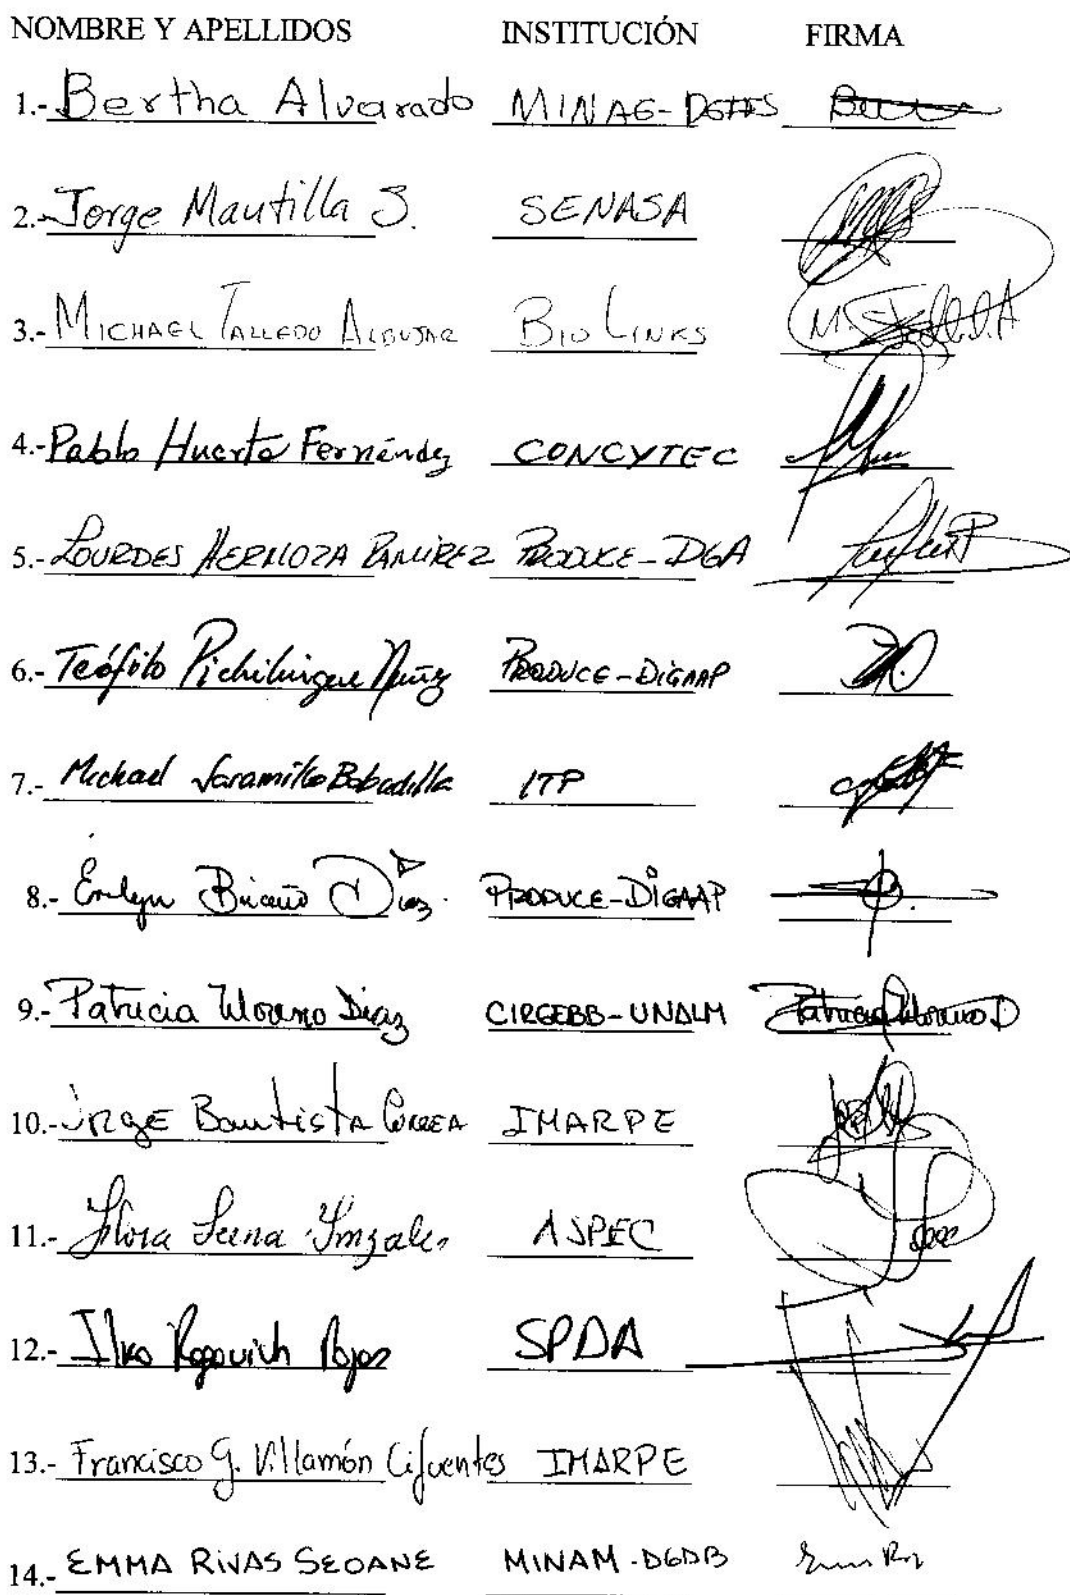 NOMBRE Y APELLIDOS INSTITUCIÓN FIRMA
1.- Bertha Alvarado MINAG-DGFFS
2.- Jorge Mautilla S. SENASA
3.- MICHAEL TALLEDO ALBUJAR BIO LINKS
4.- Pablo Huerta Fernández CONCYTEC
5.- LOURDES HERMOZA RAMIREZ PRODUCE-DGA
6.- Teófilo Pichilingue Nuñez PRODUCE-DIGAAP
7.- Michael Jaramillo Bobadilla ITP
8.- Evelyn Briceño Díaz PRODUCE-DIGAAP
9.- Patricia Moreno Diaz CIRGEBB-UNALM Patricia Moreno D
10.- JORGE Bautista CORREA IMARPE
11.- Flora Luna Gonzales ASPEC
12.- Ilko Rogovich Rojas SPDA
13.- Francisco G. Villamón Cifuentes IMARPE
14.- EMMA RIVAS SEOANE MINAM-DGDB